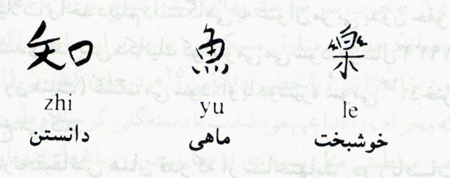 知 魚 樂
zhi yu le
دانستن ماهی خوشبخت